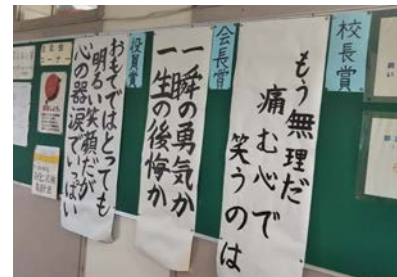 校長賞
もう無理だ
痛む心で
笑うのは
会長賞
一瞬の勇気か
一生の後悔か
役員賞
おもてではとっても
明るい笑顔だが
心の器涙でいっぱい
コーナー